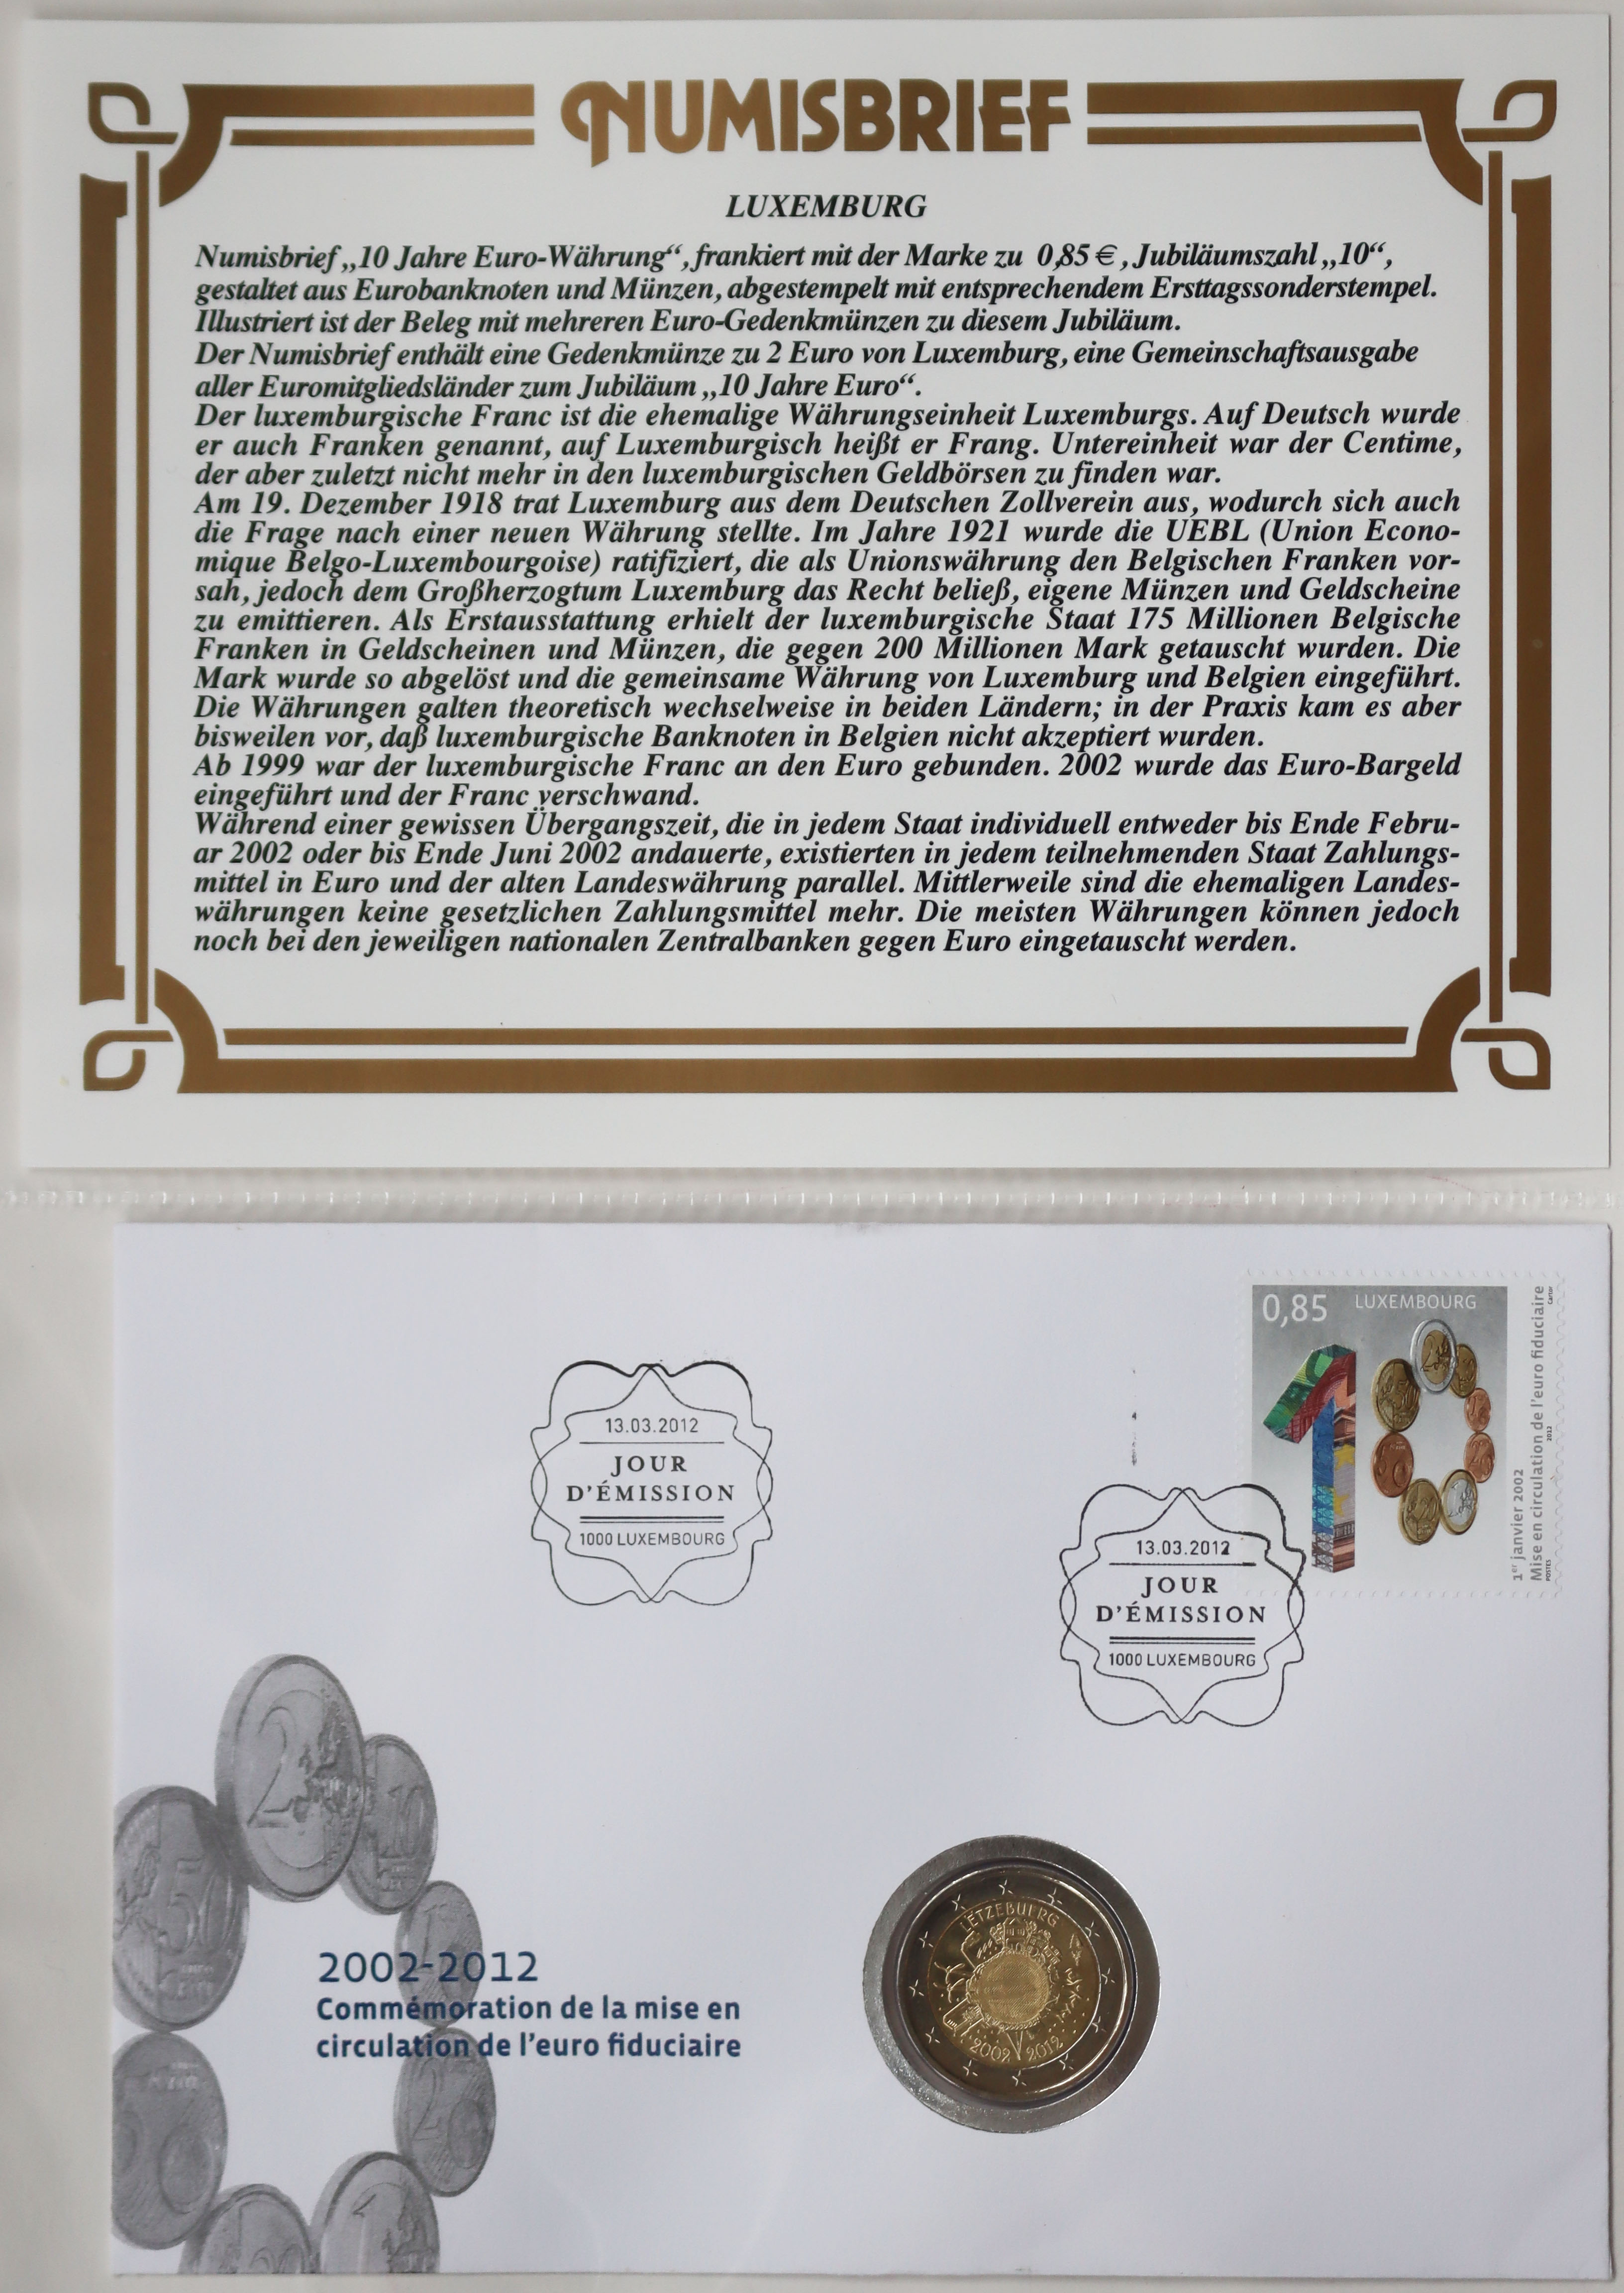 NUMISBRIEF
LUXEMBURG
Numisbrief „10 Jahre Euro-Währung“, frankiert mit der Marke zu 0,85 €, Jubiläumszahl „10“,
gestaltet aus Eurobanknoten und Münzen, abgestempelt mit entsprechendem Ersttagssonderstempel.
Illustriert ist der Beleg mit mehreren Euro-Gedenkmünzen zu diesem Jubiläum.
Der Numisbrief enthält eine Gedenkmünze zu 2 Euro von Luxemburg, eine Gemeinschaftsausgabe
aller Euromitgliedsländer zum Jubiläum „10 Jahre Euro“.
Der luxemburgische Franc ist die ehemalige Währungseinheit Luxemburgs. Auf Deutsch wurde
er auch Franken genannt, auf Luxemburgisch heißt er Frang. Untereinheit war der Centime,
der aber zuletzt nicht mehr in den luxemburgischen Geldbörsen zu finden war.
Am 19. Dezember 1918 trat Luxemburg aus dem Deutschen Zollverein aus, wodurch sich auch
die Frage nach einer neuen Währung stellte. Im Jahre 1921 wurde die UEBL (Union Econo-
mique Belgo-Luxembourgoise) ratifiziert, die als Unionswährung den Belgischen Franken vor-
sah, jedoch dem Großherzogtum Luxemburg das Recht beließ, eigene Münzen und Geldscheine
zu emittieren. Als Erstausstattung erhielt der luxemburgische Staat 175 Millionen Belgische
Franken in Geldscheinen und Münzen, die gegen 200 Millionen Mark getauscht wurden. Die
Mark wurde so abgelöst und die gemeinsame Währung von Luxemburg und Belgien eingeführt.
Die Währungen galten theoretisch wechselweise in beiden Ländern; in der Praxis kam es aber
bisweilen vor, daß luxemburgische Banknoten in Belgien nicht akzeptiert wurden.
Ab 1999 war der luxemburgische Franc an den Euro gebunden. 2002 wurde das Euro-Bargeld
eingeführt und der Franc verschwand.
Während einer gewissen Übergangszeit, die in jedem Staat individuell entweder bis Ende Febru-
ar 2002 oder bis Ende Juni 2002 andauerte, existierten in jedem teilnehmenden Staat Zahlungs-
mittel in Euro und der alten Landeswährung parallel. Mittlerweile sind die ehemaligen Landes-
währungen keine gesetzlichen Zahlungsmittel mehr. Die meisten Währungen können jedoch
noch bei den jeweiligen nationalen Zentralbanken gegen Euro eingetauscht werden.
0,85 LUXEMBOURG
1er janvier 2002
Mise en circulation de l'euro fiduciaire
POSTES 2012 Cartor
13.03.2012
JOUR
D'ÉMISSION
1000 LUXEMBOURG
13.03.2012
JOUR
D'ÉMISSION
1000 LUXEMBOURG
2
10
50
2002-2012
Commémoration de la mise en
circulation de l'euro fiduciaire
LËTZEBUERG
2002 2012